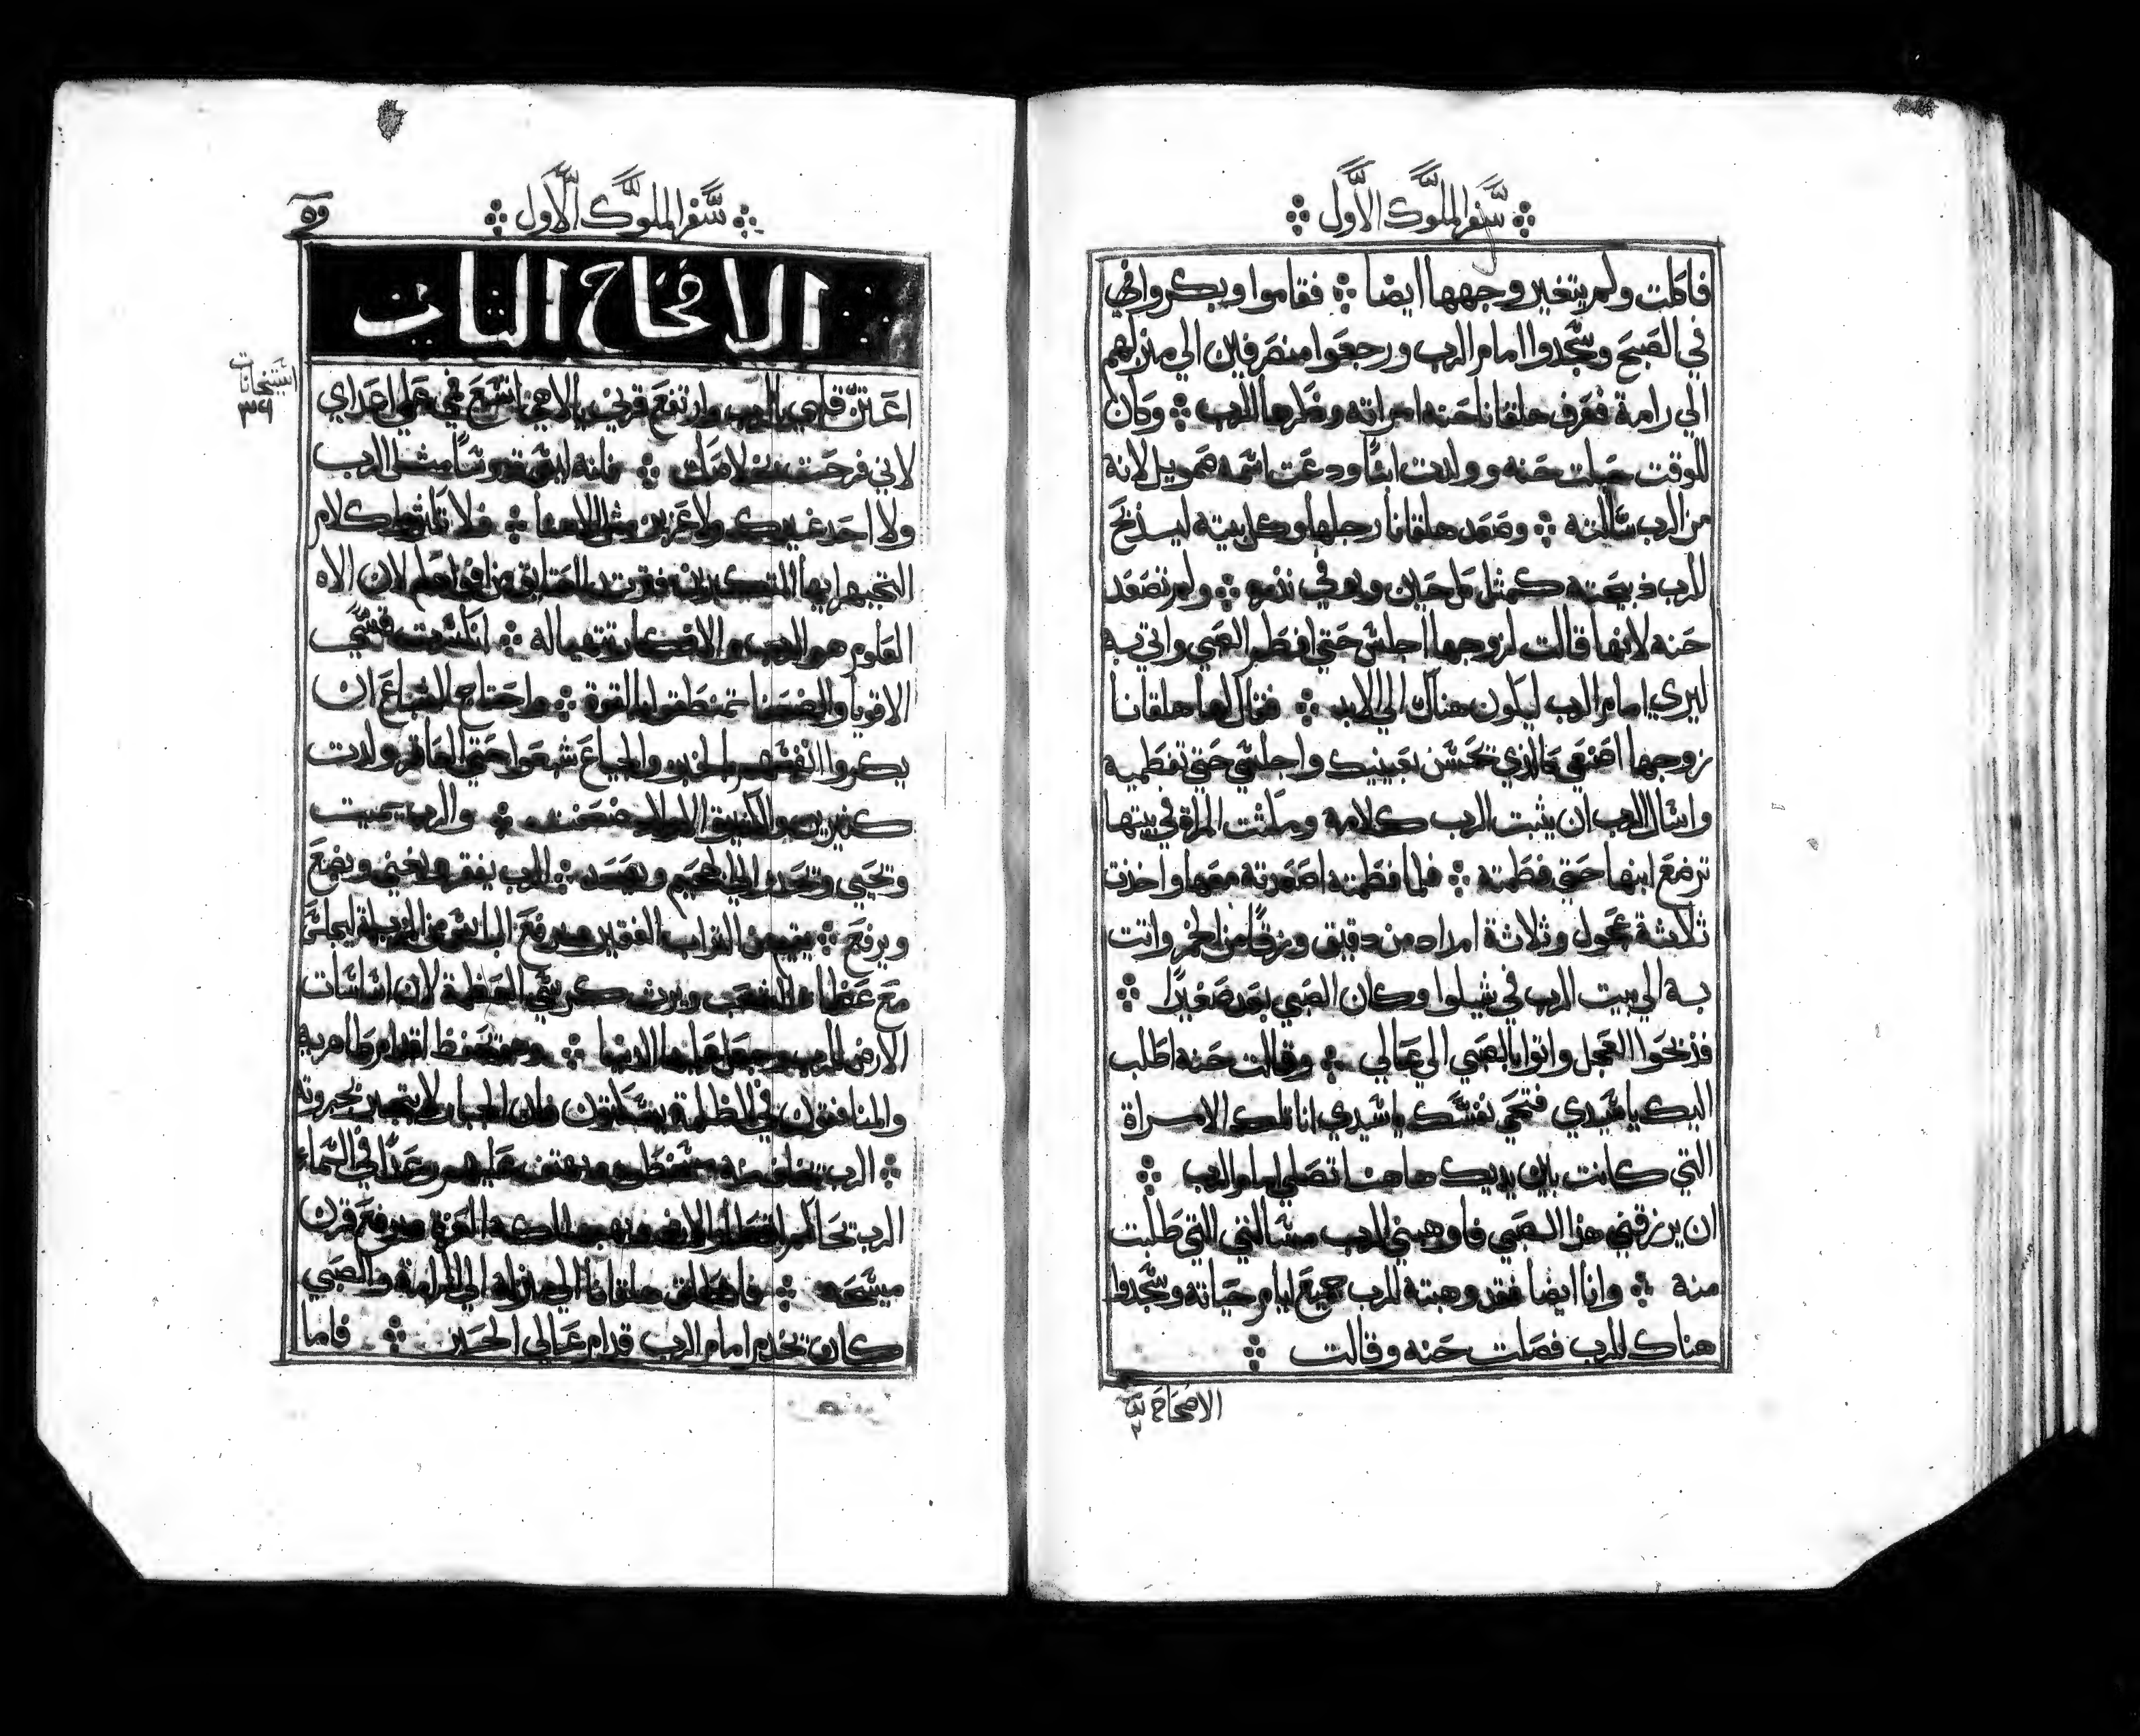 سفر الملوك الاول
فاكلت ولم يتغير وجهها ايضا فقاموا وبكروا في
في الصبح وسجدوا امام الرب ورجعوا منصرفين الي منزلهم
الي رامة فعرف هلقانا حنه امراته وذكرها الرب وكان
للوقت حبلت حنه وولدت ابنًا ودعت اسمه صمويل لانه
من الرب سالته وصعد هلقانا رجلها وكل بيته ليذبح
للرب ذبيحته كمثل كل حين ويوفي نذره ولم تصعد
حنه لانها قالت لزوجها اجلس حتي افطم الصبي واتي به
ليري امام الرب ليكون هناك الي الابد فقال لها هلقانا
زوجها اصنعي مالذي تحسن بعينيك واجلسي حتي تفطميه
واسال الرب ان يثبت الرب كلامه ومكثت المراة في بيتها
ترضع ابنها حتي فطمته فلما فطمته اصعدته معها واخذت
ثلاثة عجول وثلاثة امداد من دقيق وزقًا من الخمر واتت
به الي بيت الرب في شيلوا وكان الصبي بعد صغيرًا
فذبحوا العجل واتوا بالصبي الي عالي وقالت حنه اطلب
اليك يا سيدي فتحي نفسك يا سيدي انا تلك الامراة
التي كانت بين يديك هاهنا تصلي امام الرب
ان يرزقني هذا الصبي فاوهبني الرب مسالتي التي طلبت
منه وانا ايضا فقد وهبته للرب جميع ايام حياته وسجدوا
هناك للرب فصلت حنه وقالت
الاصحاح ٢
سفر الملوك الاول
الاصحاح الثاني
اعتز قلبي بالرب وارتفع قرني بالاهي اتسع فمي علي اعداي
لاني فرحت بخلاصك فانه ليس قدوسًا مثل الرب
ولا احد غيرك ولا عزيز مثل الاهنا فلا تكثروا كلام
التجبر ايها المتكبرين فقرت العتايق من افواهكم لان الاه
العلوم هو الرب والافكار تتهيا له انكسرت قسي
الاقويا والضعفا تمنطقوا بالقوة واحتاج الشباع ان
يكروا انفسهم بالخبز والجياع شبعوا حتي العاقر ولدت
كثيرين والكثيرة الاولاد ضعفت والرب يميت
وتحيي وتحدر الي الجحيم ويصعد الرب يفقر ويغني ويضع
ويرفع يقيم من التراب الفقير ويرفع البايس من المزبلة ليجلس
مع عظماء الشعب ويرث كرسي العظمة لان اساسات
الارض للرب وجعل عليها الدنيا وهو يحفظ اقدام طاهريه
والمنافقون في الظلمة يسكتون فان الجبار لا يتجبر بجبروته
الرب عليهم رعدًا في السماء
الرب يرفع قرن
مسيحه فانطلق هلقانا الي منزله الي الرامة والصبي
كان يخدم امام الرب قدام عالي الحبر فاما